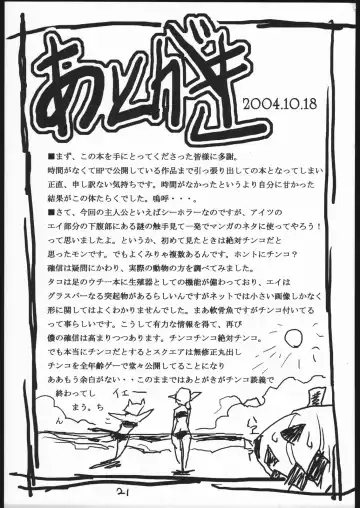 あとがき
2004.10.18
■まず、この本を手にとってくださった皆様に多謝。
時間がなくてHPで公開している作品まで引っ張り出しての本となってしまい
正直、申し訳ない気持ちです。時間がなかったというより自分に甘かった
結果がこの体たらくでした。嗚呼・・・。
■さて、今回の主人公といえばシーホラーなのですが、アイツの
エイ部分の下腹部にある謎の触手見て一発でマンガのネタに使ってやろう！
って思いましたよ。というか、初めて見たときは絶対チンコだ
と思ったモンです。でもよくみりゃ複数あるんです。ホントにチンコ？
確信は疑問にかわり、実際の動物の方を調べてみました。
タコは足のウチ一本に生殖器としての機能が備わっており、エイは
グラスパーなる突起物があるらしいんですがネットでは小さい画像しかなく
形に関してはよくわかりませんでした。まあ軟骨魚ですがチンコ付いてる
って事らしいです。こうして有力な情報を得て、再び
僕の確信は高まりつつあります。チンコチンコ絶対チンコ。
でも本当にチンコだとするとスクエアは無修正丸出し
チンコを全年齢ゲーで堂々公開してることになり
ああもう余白がない・・このままではあとがきがチンコ談義で
終わってし
まう。ち
ん
イェー
21